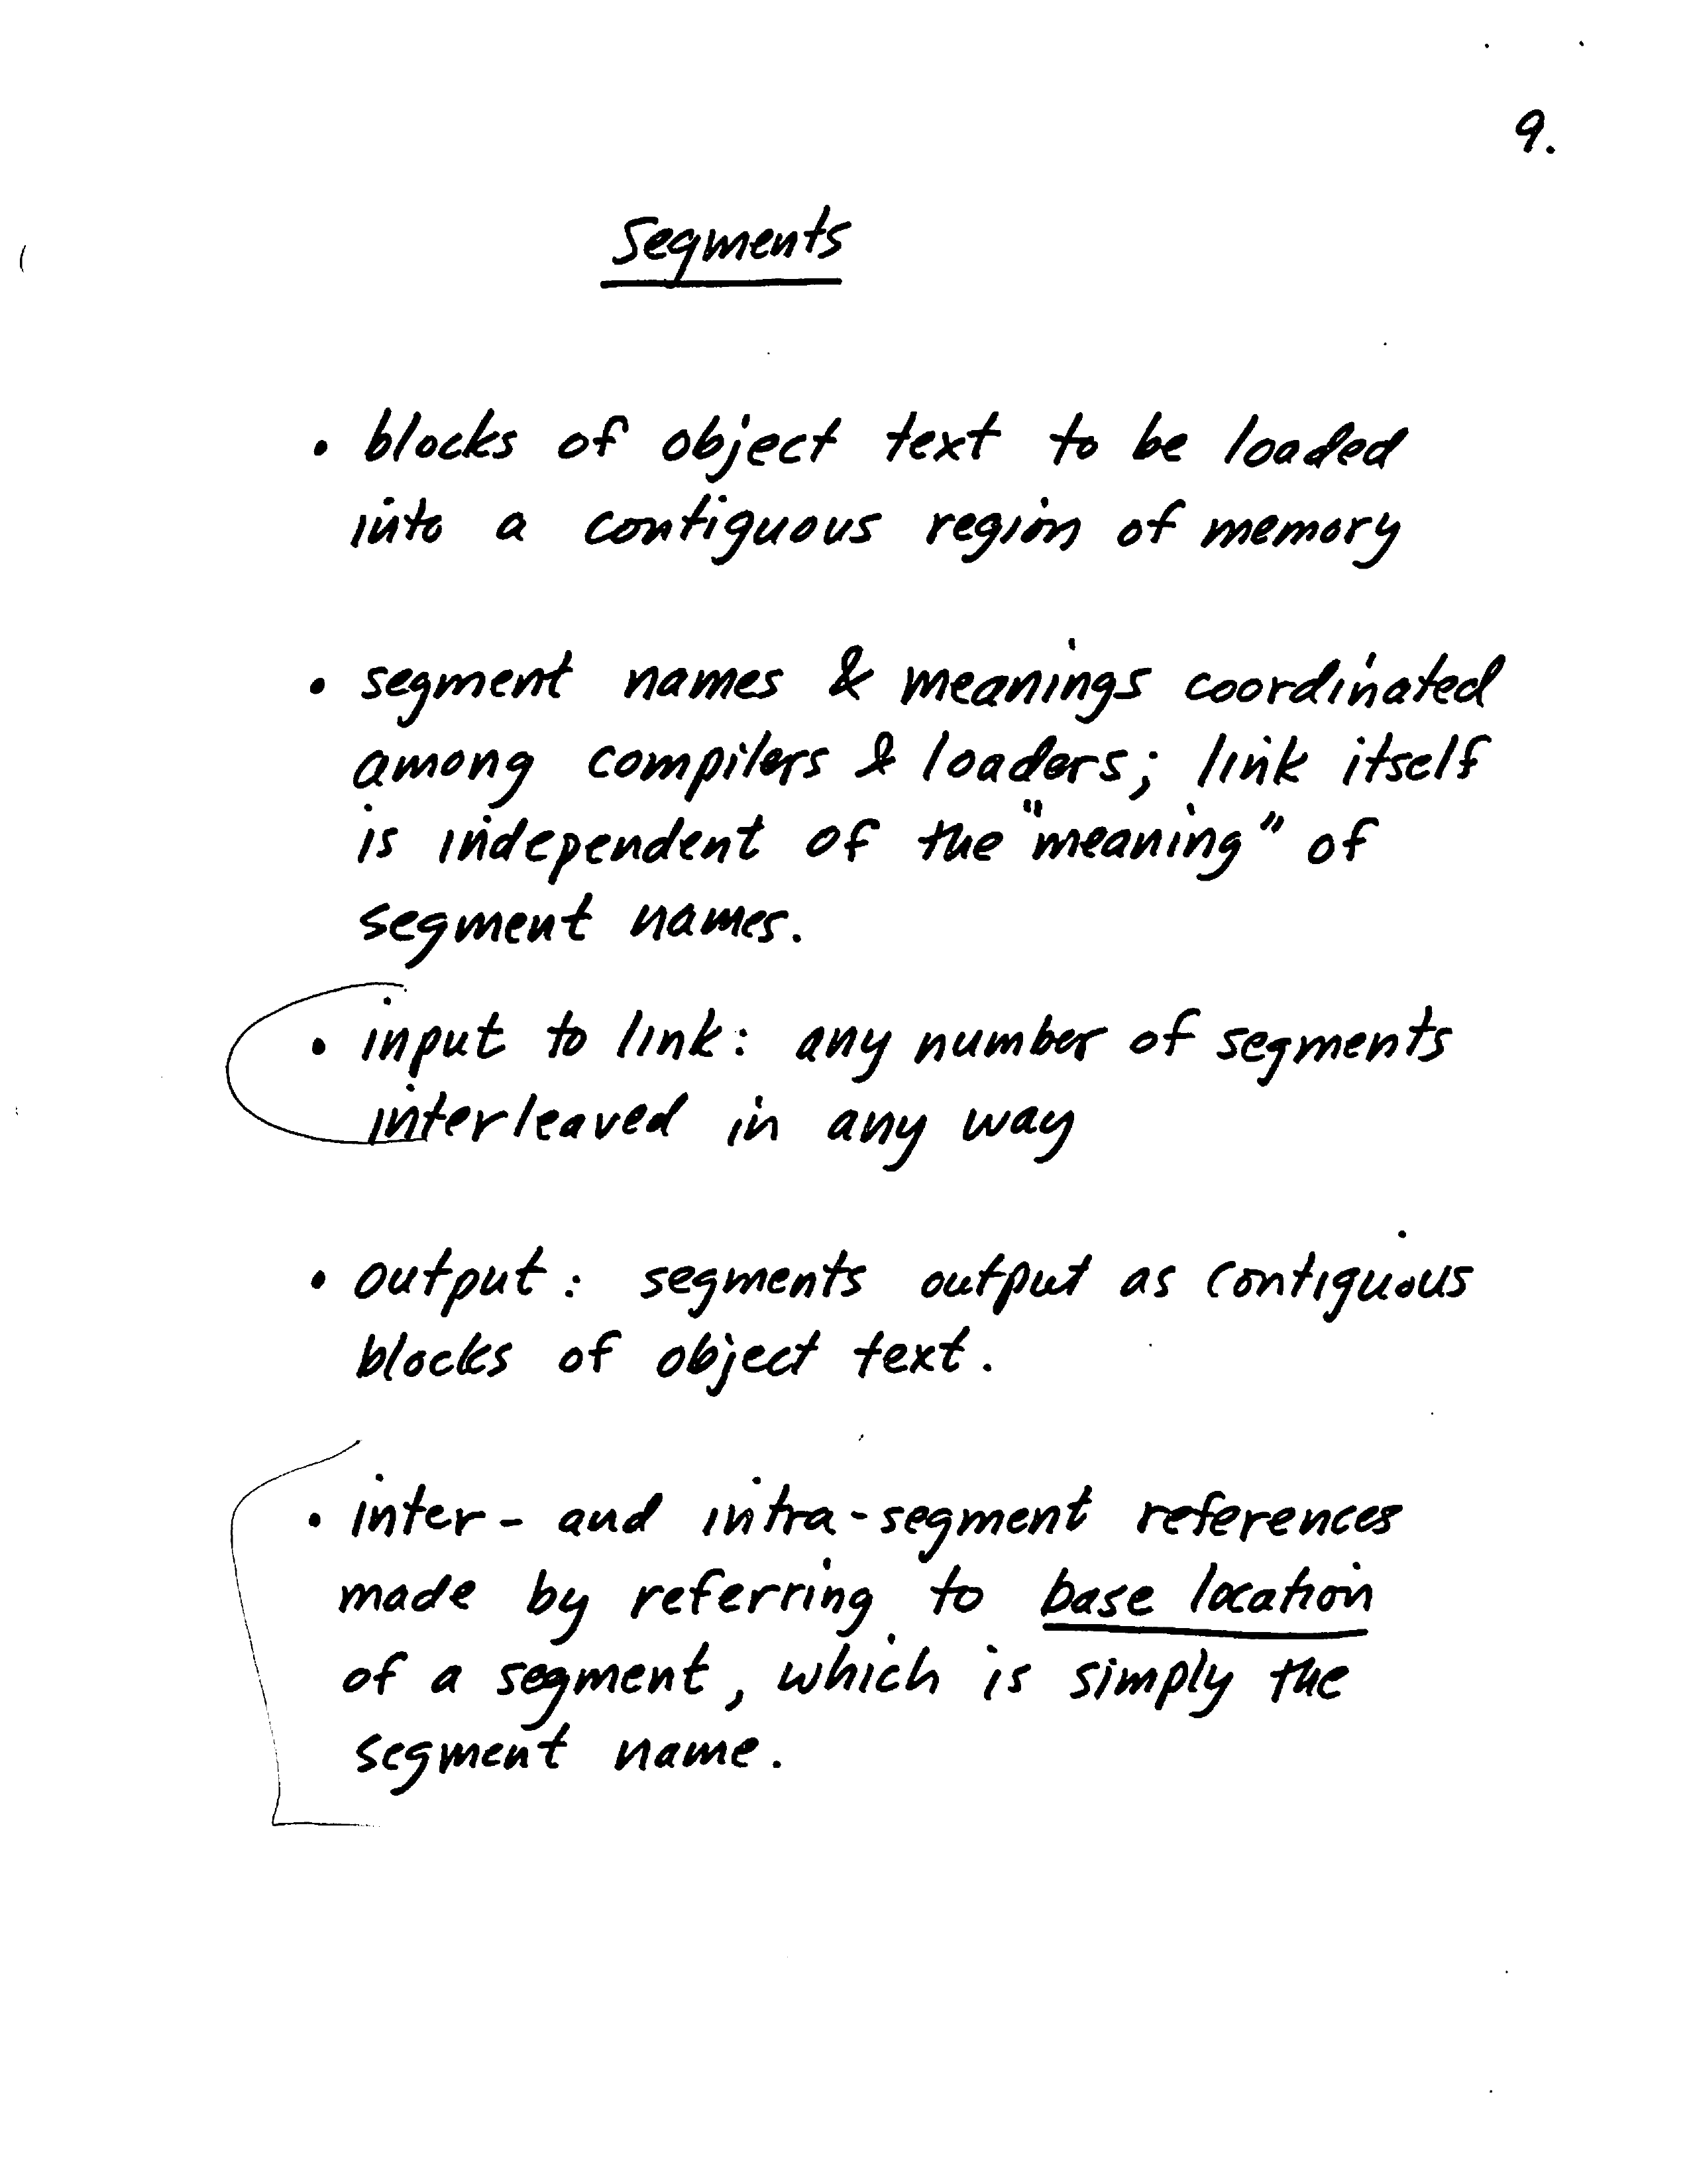 9.
Segments
• blocks of object text to be loaded
into a contiguous region of memory
• segment names & meanings coordinated
among compilers & loaders; link itself
is independent of the "meaning" of
segment names.
• input to link: any number of segments
interleaved in any way
• output: segments output as contiguous
blocks of object text.
• inter- and intra-segment references
made by referring to base location
of a segment, which is simply the
segment name.